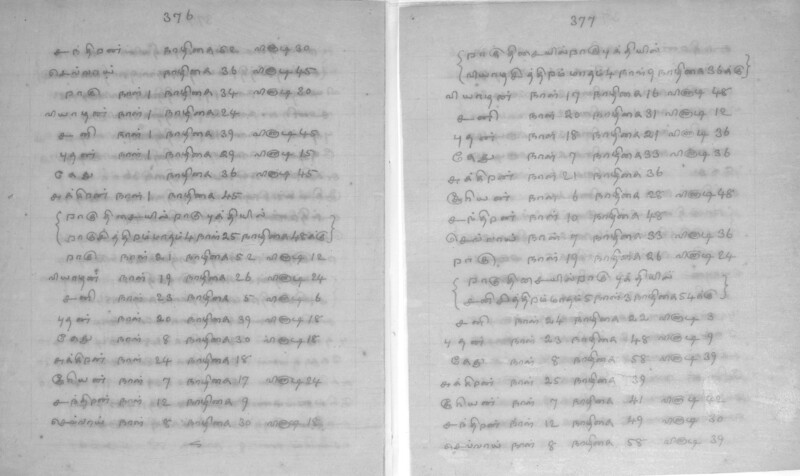 376
சந்திரன் நாழிகை 52 விகடி 30
செவ்வாய் நாழிகை 36 விகடி 45
ராகு நாள் 1 நாழிகை 34 விகடி 30
வியாழன் நாள் 1 நாழிகை 24
சனி நாள் 1 நாழிகை 39 விகடி 45
புதன் நாள் 1 நாழிகை 29 விகடி 15
கேது நாழிகை 36 விகடி 45
சுக்கிரன் நாள் 1 நாழிகை 45
ராகு திசையில் ராகு புத்தியில்
ராகு மாதம் 4 நாள் 25 நாழிகை 48
ராகு நாள் 21 நாழிகை 52 விகடி 12
வியாழன் நாள் 19 நாழிகை 26 விகடி 24
சனி நாள் 23 நாழிகை 5 விகடி 6
புதன் நாள் 20 நாழிகை 39 விகடி 18
கேது நாள் 8 நாழிகை 30 விகடி 18
சுக்கிரன் நாள் 24 நாழிகை 18
நாள் 7 நாழிகை 17 விகடி 24
சந்திரன் நாள் 12 நாழிகை 9
செவ்வாய் நாள் 8 நாழிகை 30 விகடி 18
377
ராகு திசையில் ராகு புத்தியில்
மாதம் 4 நாள் 9 நாழிகை 36
வியாழன் நாள் 17 நாழிகை 16 விகடி 48
சனி நாள் 20 நாழிகை 31 விகடி 12
புதன் நாள் 18 நாழிகை 21 விகடி 36
கேது நாள் 7 நாழிகை 33 விகடி 36
சுக்கிரன் நாள் 21 நாழிகை 36
நாள் 6 நாழிகை 28 விகடி 48
சந்திரன் நாள் 10 நாழிகை 48
செவ்வாய் நாள் 7 நாழிகை 33 விகடி 36
ராகு நாள் 19 நாழிகை 26 விகடி 24
ராகு திசையில் ராகு புத்தியில்
சனி மாதம் 5 நாள் 3 நாழிகை 54
சனி நாள் 24 நாழிகை 22 விகடி 3
புதன் நாள் 23 நாழிகை 48 விகடி 9
கேது நாள் 8 நாழிகை 58 விகடி 39
சுக்கிரன் நாள் 25 நாழிகை 39
நாள் 7 நாழிகை 41 விகடி 42
சந்திரன் நாள் 12 நாழிகை 49 விகடி 30
செவ்வாய் நாள் 8 நாழிகை 58 விகடி 39